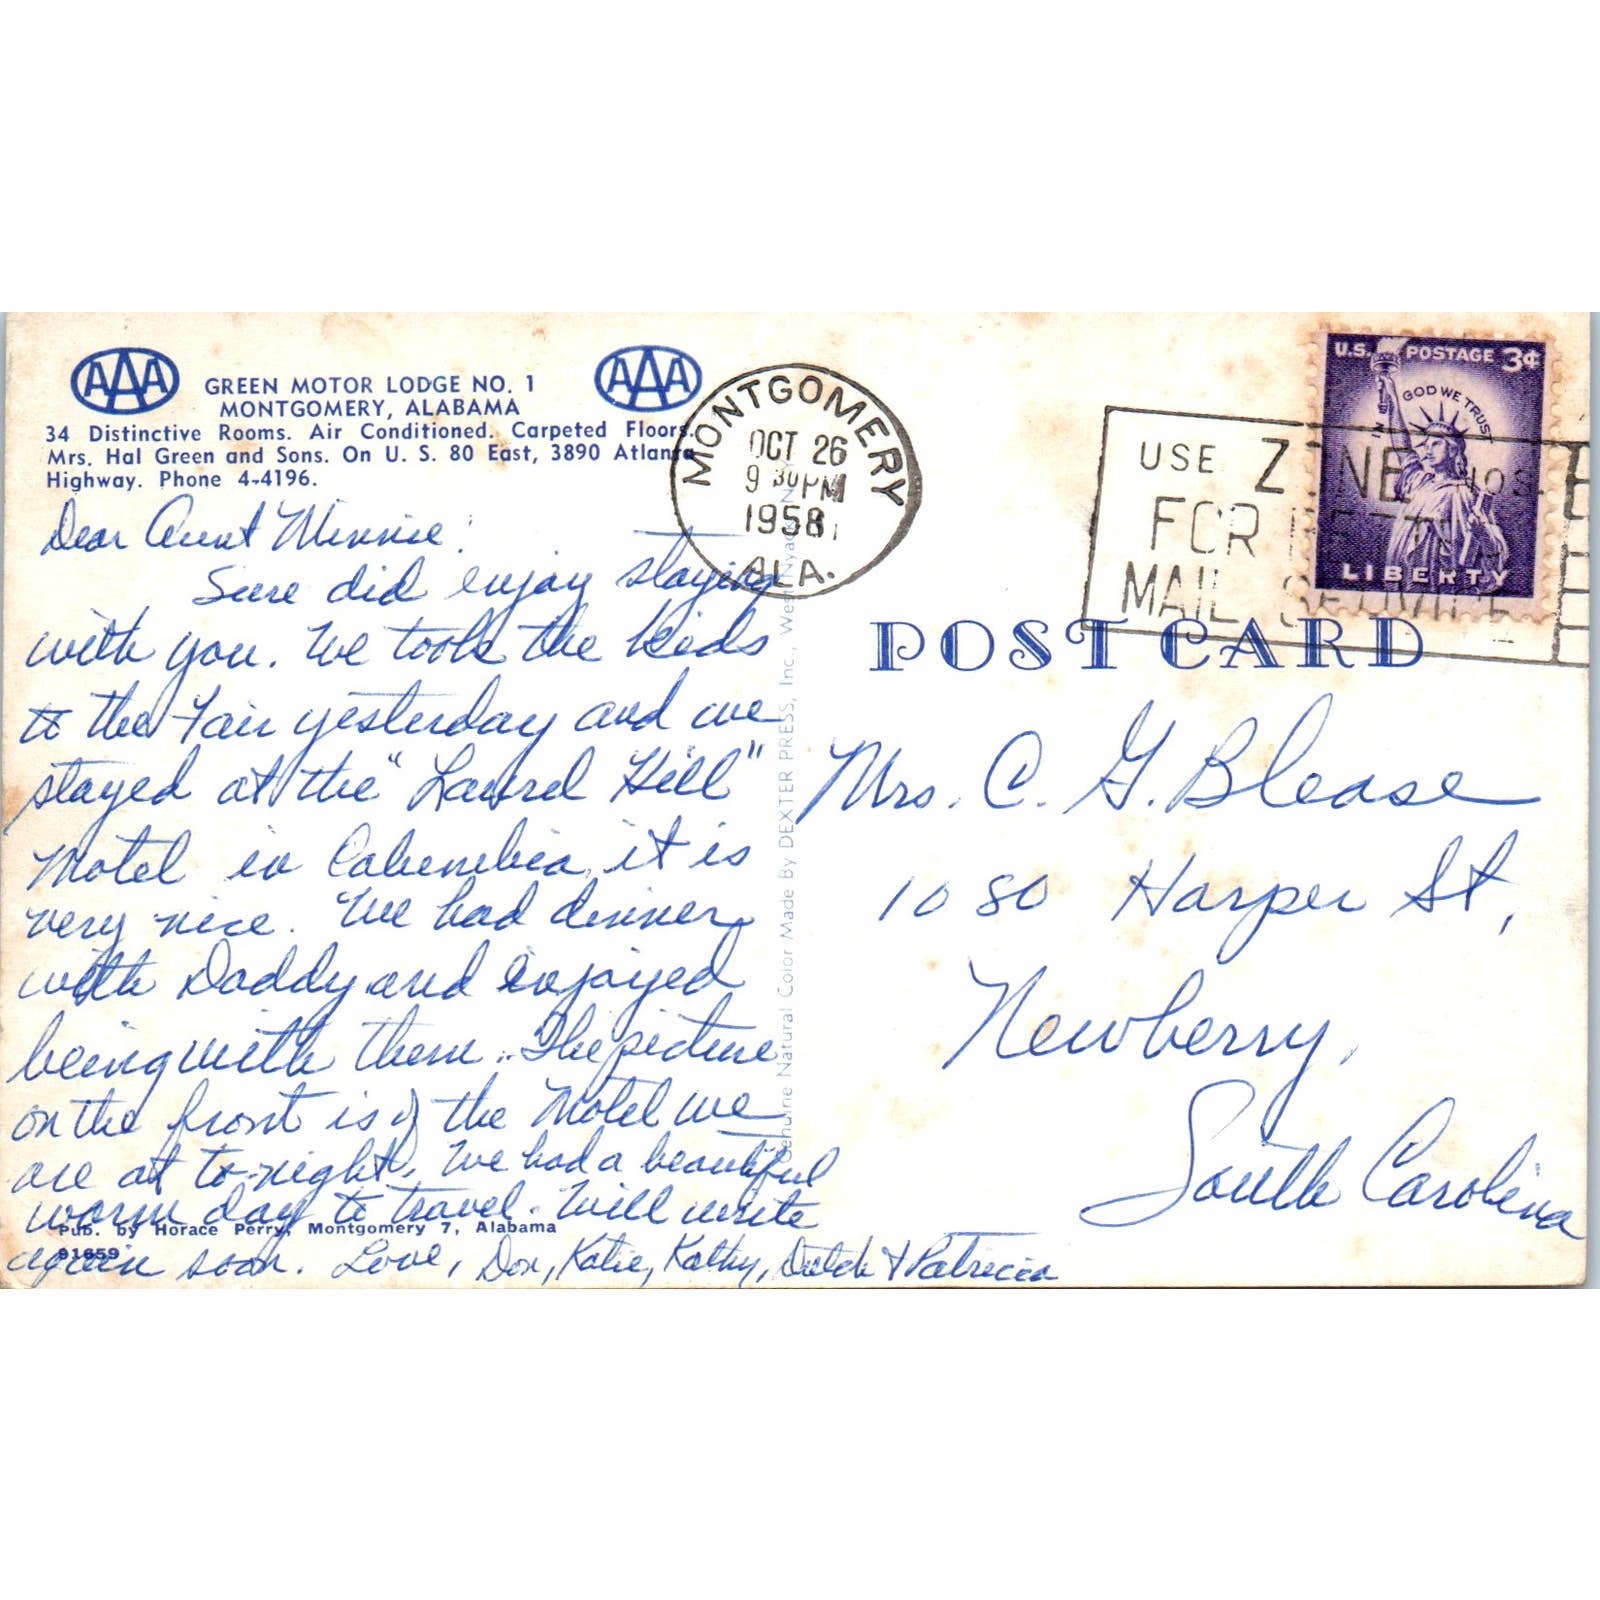 AAA GREEN MOTOR LODGE NO. 1 AAA
MONTGOMERY, ALABAMA
34 Distinctive Rooms. Air Conditioned. Carpeted Floors.
Mrs. Hal Green and Sons. On U. S. 80 East, 3890 Atlanta
Highway. Phone 4-4196.
Dear Aunt Minnie:
Sure did enjoy staying
with you. We took the kids
to the Fair yesterday and we
stayed at the "Laurel Hill"
Motel in Columbia, it is
very nice. We had dinner
with Daddy and enjoyed
being with them. The picture
on the front is of the Motel we
are at to-night. We had a beautiful
warm day to travel. Will write
again soon. Love, Don, Katie, Kathy, Dutch & Patricia
Pub. by Horace Perry, Montgomery 7, Alabama
91659
Genuine Natural Color Made By DEXTER PRESS, Inc., West Nyack, NY
MONTGOMERY
OCT 26
9 30 PM
1958
ALA.
USE ZONE NOS
FOR BETTER
MAIL SERVICE
U.S. POSTAGE 3¢
IN GOD WE TRUST
LIBERTY
POST CARD
Mrs. C. G. Blease
1080 Harper St,
Newberry,
South Carolina